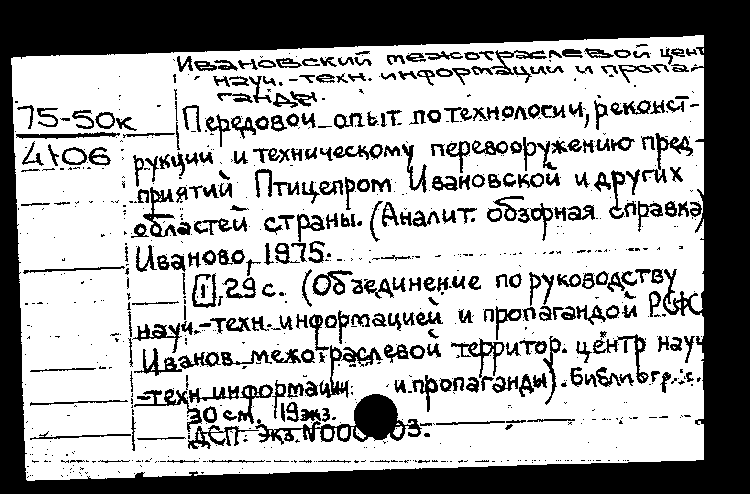 Ивановский межотраслевой цент
науч.-техн. информации и пропа-
ганды.
75-50к
4106
Передовой опыт по технологии, реконст-
рукции и техническому перевооружению пред-
приятий Птицепром Ивановской и других
областей страны. (Аналит. обзорная справка)
Иваново, 1975.
[1], 29 с. (Объединение по руководству
науч.-техн. информацией и пропагандой РСФС
Иванов. межотраслевой территор. центр науч
-техн. информации и пропаганды). Библиогр.: с.
30 см. 19 экз.
ДСП. Экз. N